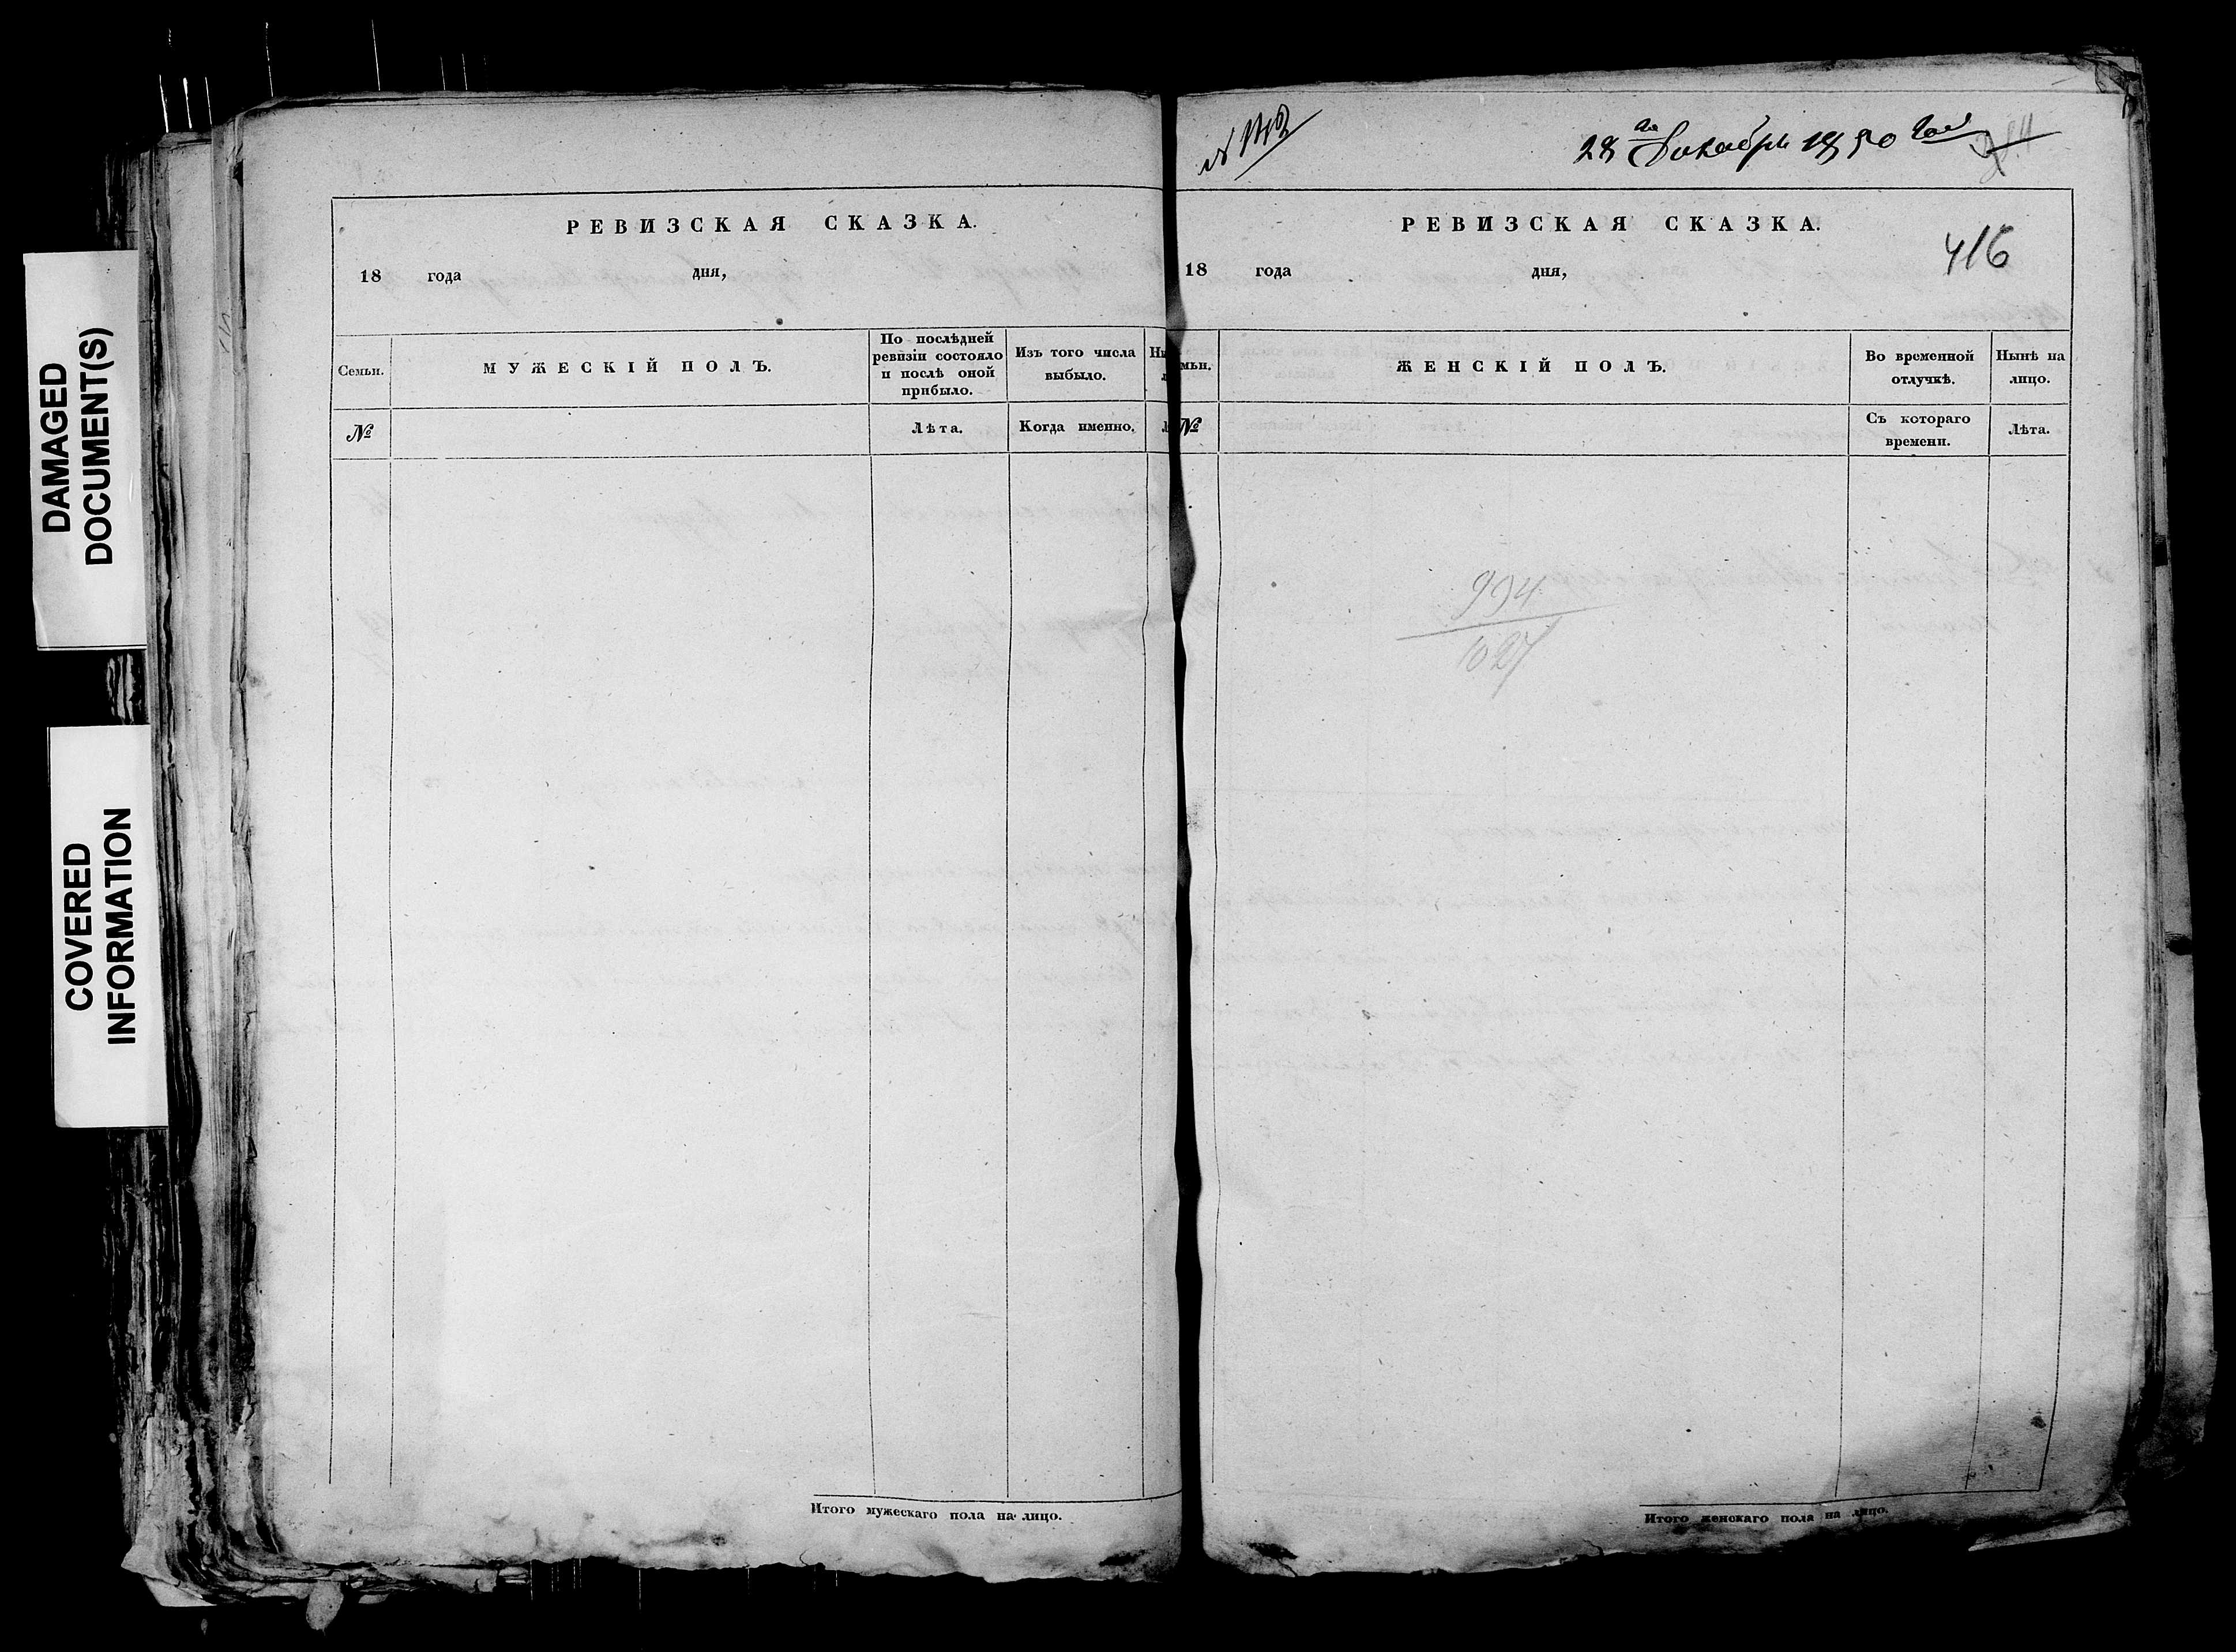 DAMAGED
DOCUMENT(S)
COVERED
INFORMATION
РЕВИЗСКАЯ СКАЗКА.
18 года дня,
Семьи.
МУЖЕСКІЙ ПОЛЪ.
По послѣдней
ревизіи состояло
и послѣ оной
прибыло.
Изъ того числа
выбыло.
№
Лѣта.
Когда именно.
Итого мужескаго пола на лицо.
28 го Декабря 1850 года
РЕВИЗСКАЯ СКАЗКА.
416
18 года дня,
мьи.
ЖЕНСКІЙ ПОЛЪ.
Во временной
отлучкѣ.
Нынѣ на
лицо.
№
Съ котораго
времени.
Лѣта.
994
1027
Итого женскаго пола на лицо.